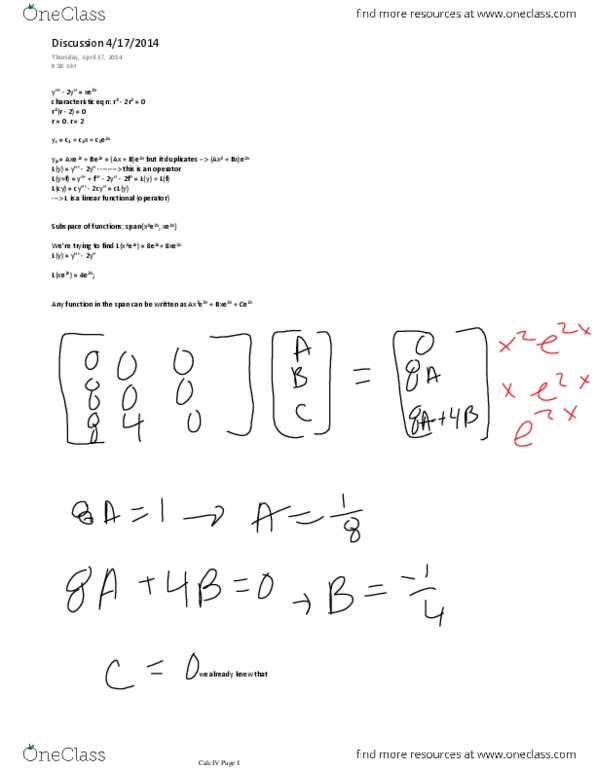 OneClass
find more resources at www.oneclass.com
Discussion 4/17/2014
Thursday, April 17, 2014
9:28 AM
y''' - 2y'' = xe²ˣ
characteristic eqn: r³ - 2r² = 0
r²(r - 2) = 0
r = 0. r = 2
y꜀ = c₁ + c₂x + c₃e²ˣ
yₚ = Axe²ˣ + Be²ˣ = (Ax + B)e²ˣ but it duplicates --> (Ax² + Bx)e²ˣ
L(y) = y''' - 2y'' -------> this is an operator
L(y+f) = y''' + f''' - 2y'' - 2f'' = L(y) + L(f)
L(cy) = cy''' - 2cy'' = cL(y)
---> L is a linear functional (operator)
Subspace of functions: span(x²e²ˣ, xe²ˣ)
We're trying to find L(x²e²ˣ) = 8e²ˣ + 8xe²ˣ
L(y) = y''' - 2y''
L(xe²ˣ) = 4e²ˣ;
Any function in the span can be written as Ax²e²ˣ + Bxe²ˣ + Ce²ˣ
0 0 0 A = 0 x²e²ˣ
8 0 0 B 8A x e²ˣ
8 4 0 C 8A+4B e²ˣ
8A = 1 → A = 1/8
8A + 4B = 0 → B = -1/4
C = 0 we already knew that
OneClass
CalcIV Page 1
find more resources at www.oneclass.com